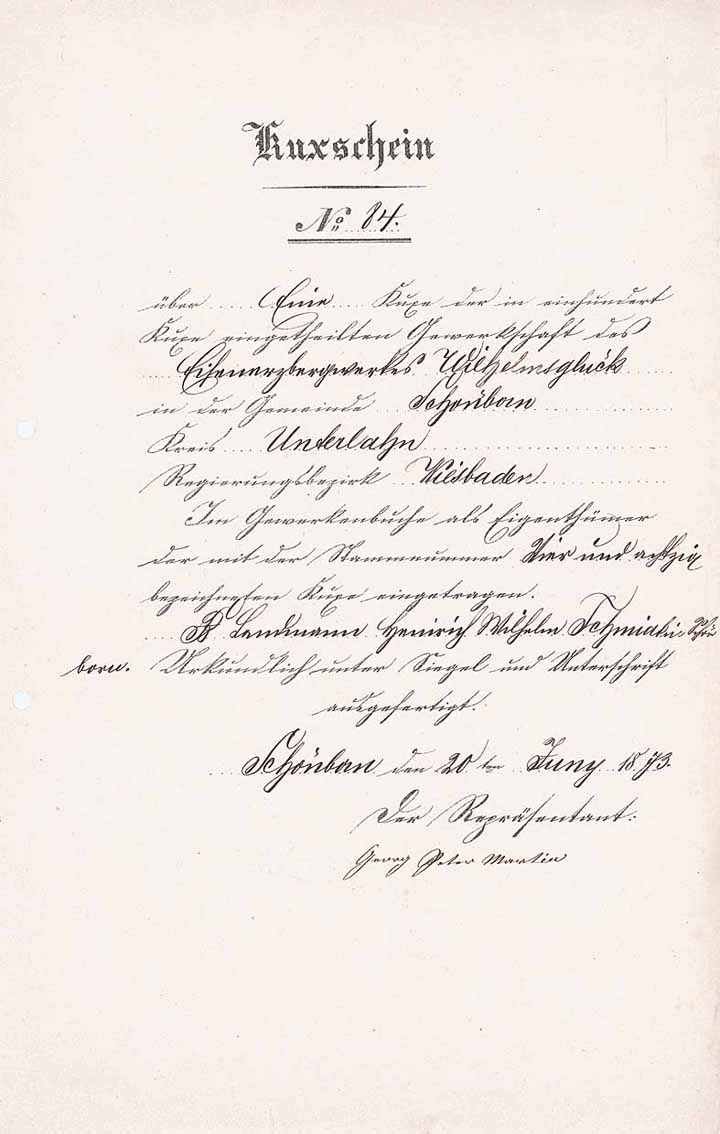 Kuxschein
No 84.
über Eine Kuxe der in einhundert
Kuxe eingetheilten Gewerkschaft des
Eisenerzbergwerkes Wilhelmsglück
in der Gemeinde Schönborn
Kreis Unterlahn
Regierungsbezirk Wiesbaden
Im Gewerkenbuche als Eigenthümer
der mit der Stammnummer Vier und achtzig
bezeichneten Kuxe eingetragen.
Landmann Heinrich Wilhelm Schmidt in Schön
born. Urkundlich unter Siegel und Unterschrift
ausgefertigt.
Schönborn den 20 ten Juny 1873.
Der Repräsentant:
Georg Peter Martin